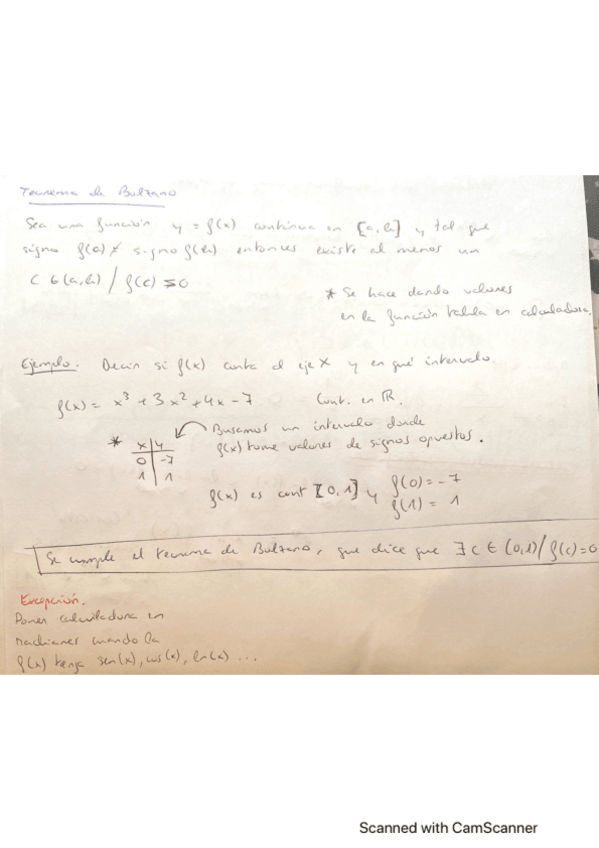 Teorema de Bolzano
Sea una función y = f(x) continua en [a,b] y tal que
signo f(a) ≠ signo f(b) entonces existe al menos un
c ∈ (a,b) / f(c) = 0
* Se hace dando valores
en la función tabla en calculadora.
Ejemplo. Decir si f(x) corta el eje X y en qué intervalo.
f(x) = x³ + 3x² + 4x - 7 Cont. en ℝ.
* x y Buscamos un intervalo donde
0 -7 f(x) tome valores de signos opuestos.
1 1
f(x) es cont [0,1] y f(0) = -7
f(1) = 1
Se cumple el teorema de Bolzano, que dice que ∃ c ∈ (0,1) / f(c) = 0
Excepción.
Poner calculadora en
radianes cuando la
f(x) tenga sen(x), cos(x), ln(x) ...
Scanned with CamScanner